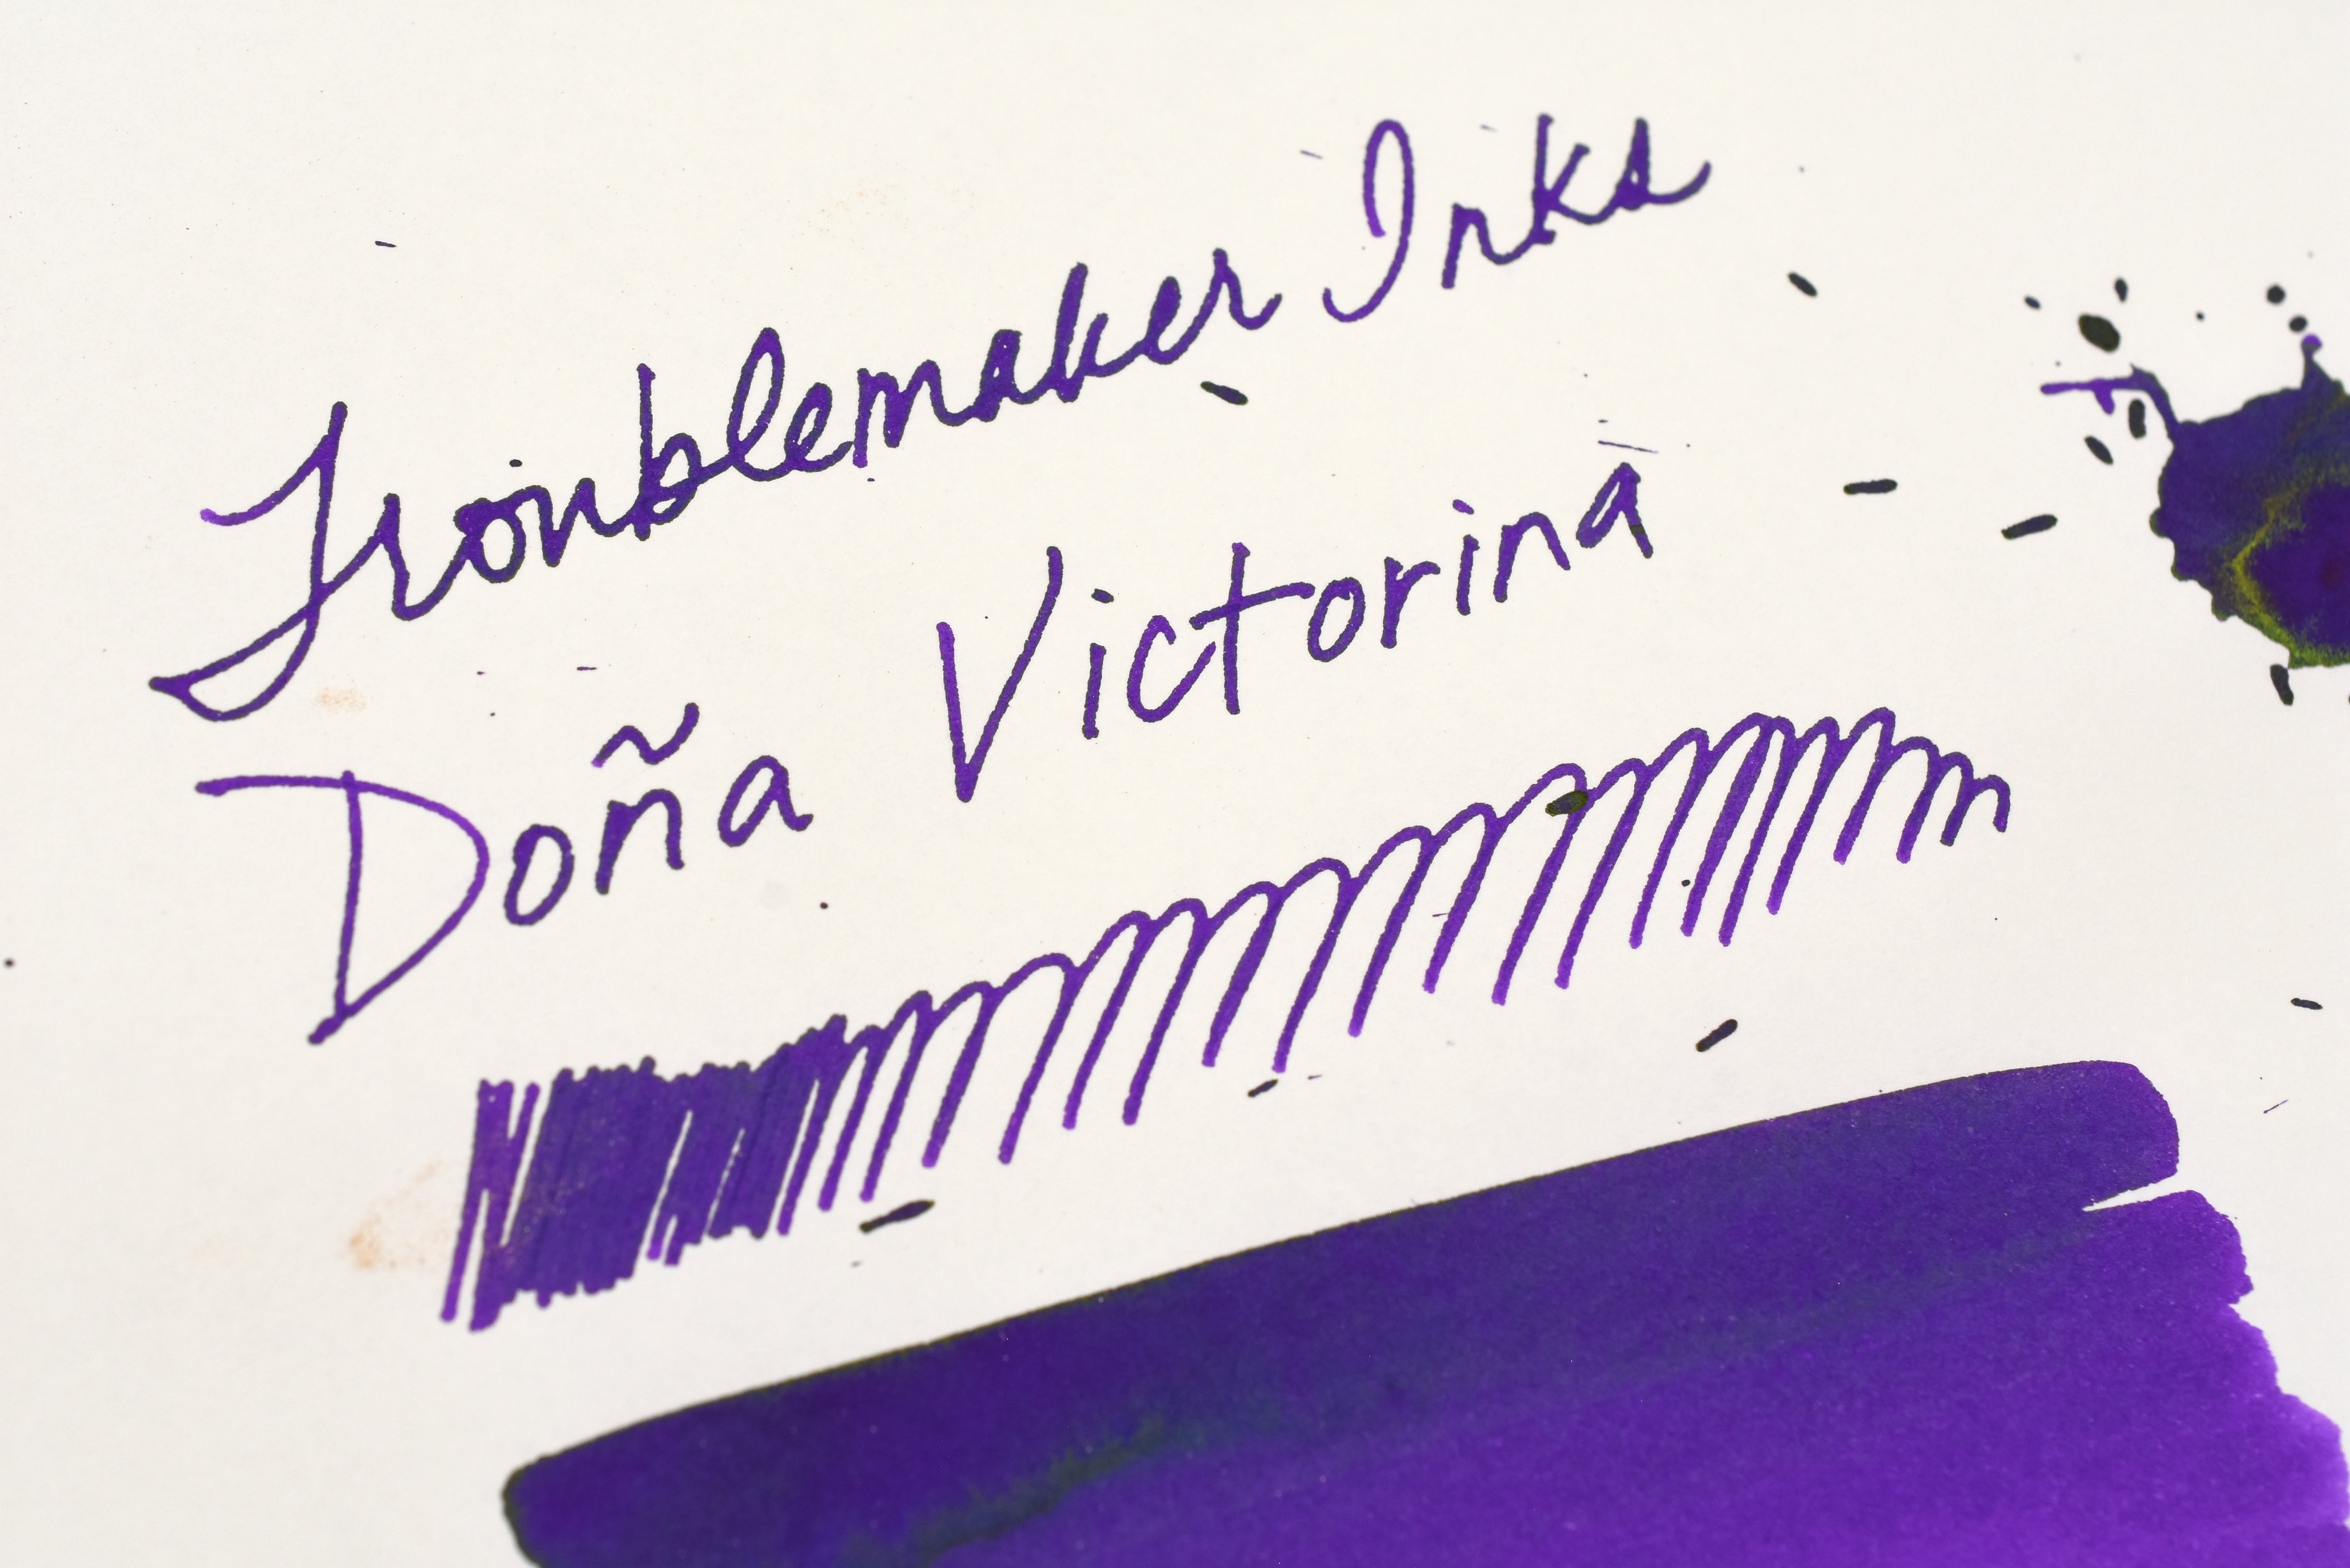 Troublemaker Inks
Doña Victorina